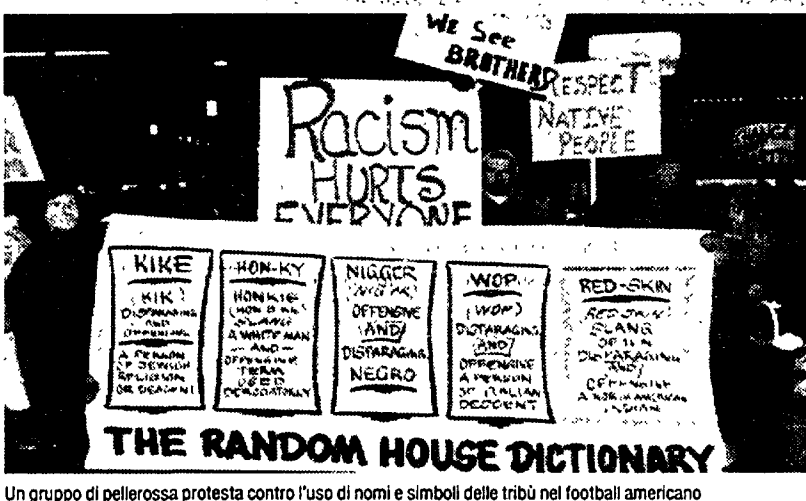 WE See
BROTHERS
RESPECT
NATIVE
PEOPLE
Racism
HURTS
EVERYONE
KIKE
(KIK)
DISPARAGING
AND
OFFENSIVE
A PERSON
OF JEWISH
RELIGION
OR DESCENT
HON-KY
HONKIE
SLANG
A WHITE MAN
AND
OFFENSIVE
TERM
USED
DEROGATORILY
NIGGER
OFFENSIVE
(AND)
DISPARAGING
NEGRO
WOP
(WOP)
DISPARAGING
(AND)
OFFENSIVE
A PERSON
OF ITALIAN
DESCENT
RED-SKIN
SLANG
OFTEN
DISPARAGING
AND
OFFENSIVE
A NORTH AMERICAN
INDIAN
THE RANDOM HOUSE DICTIONARY
Un gruppo di pellerossa protesta contro l'uso di nomi e simboli delle tribù nel football americano